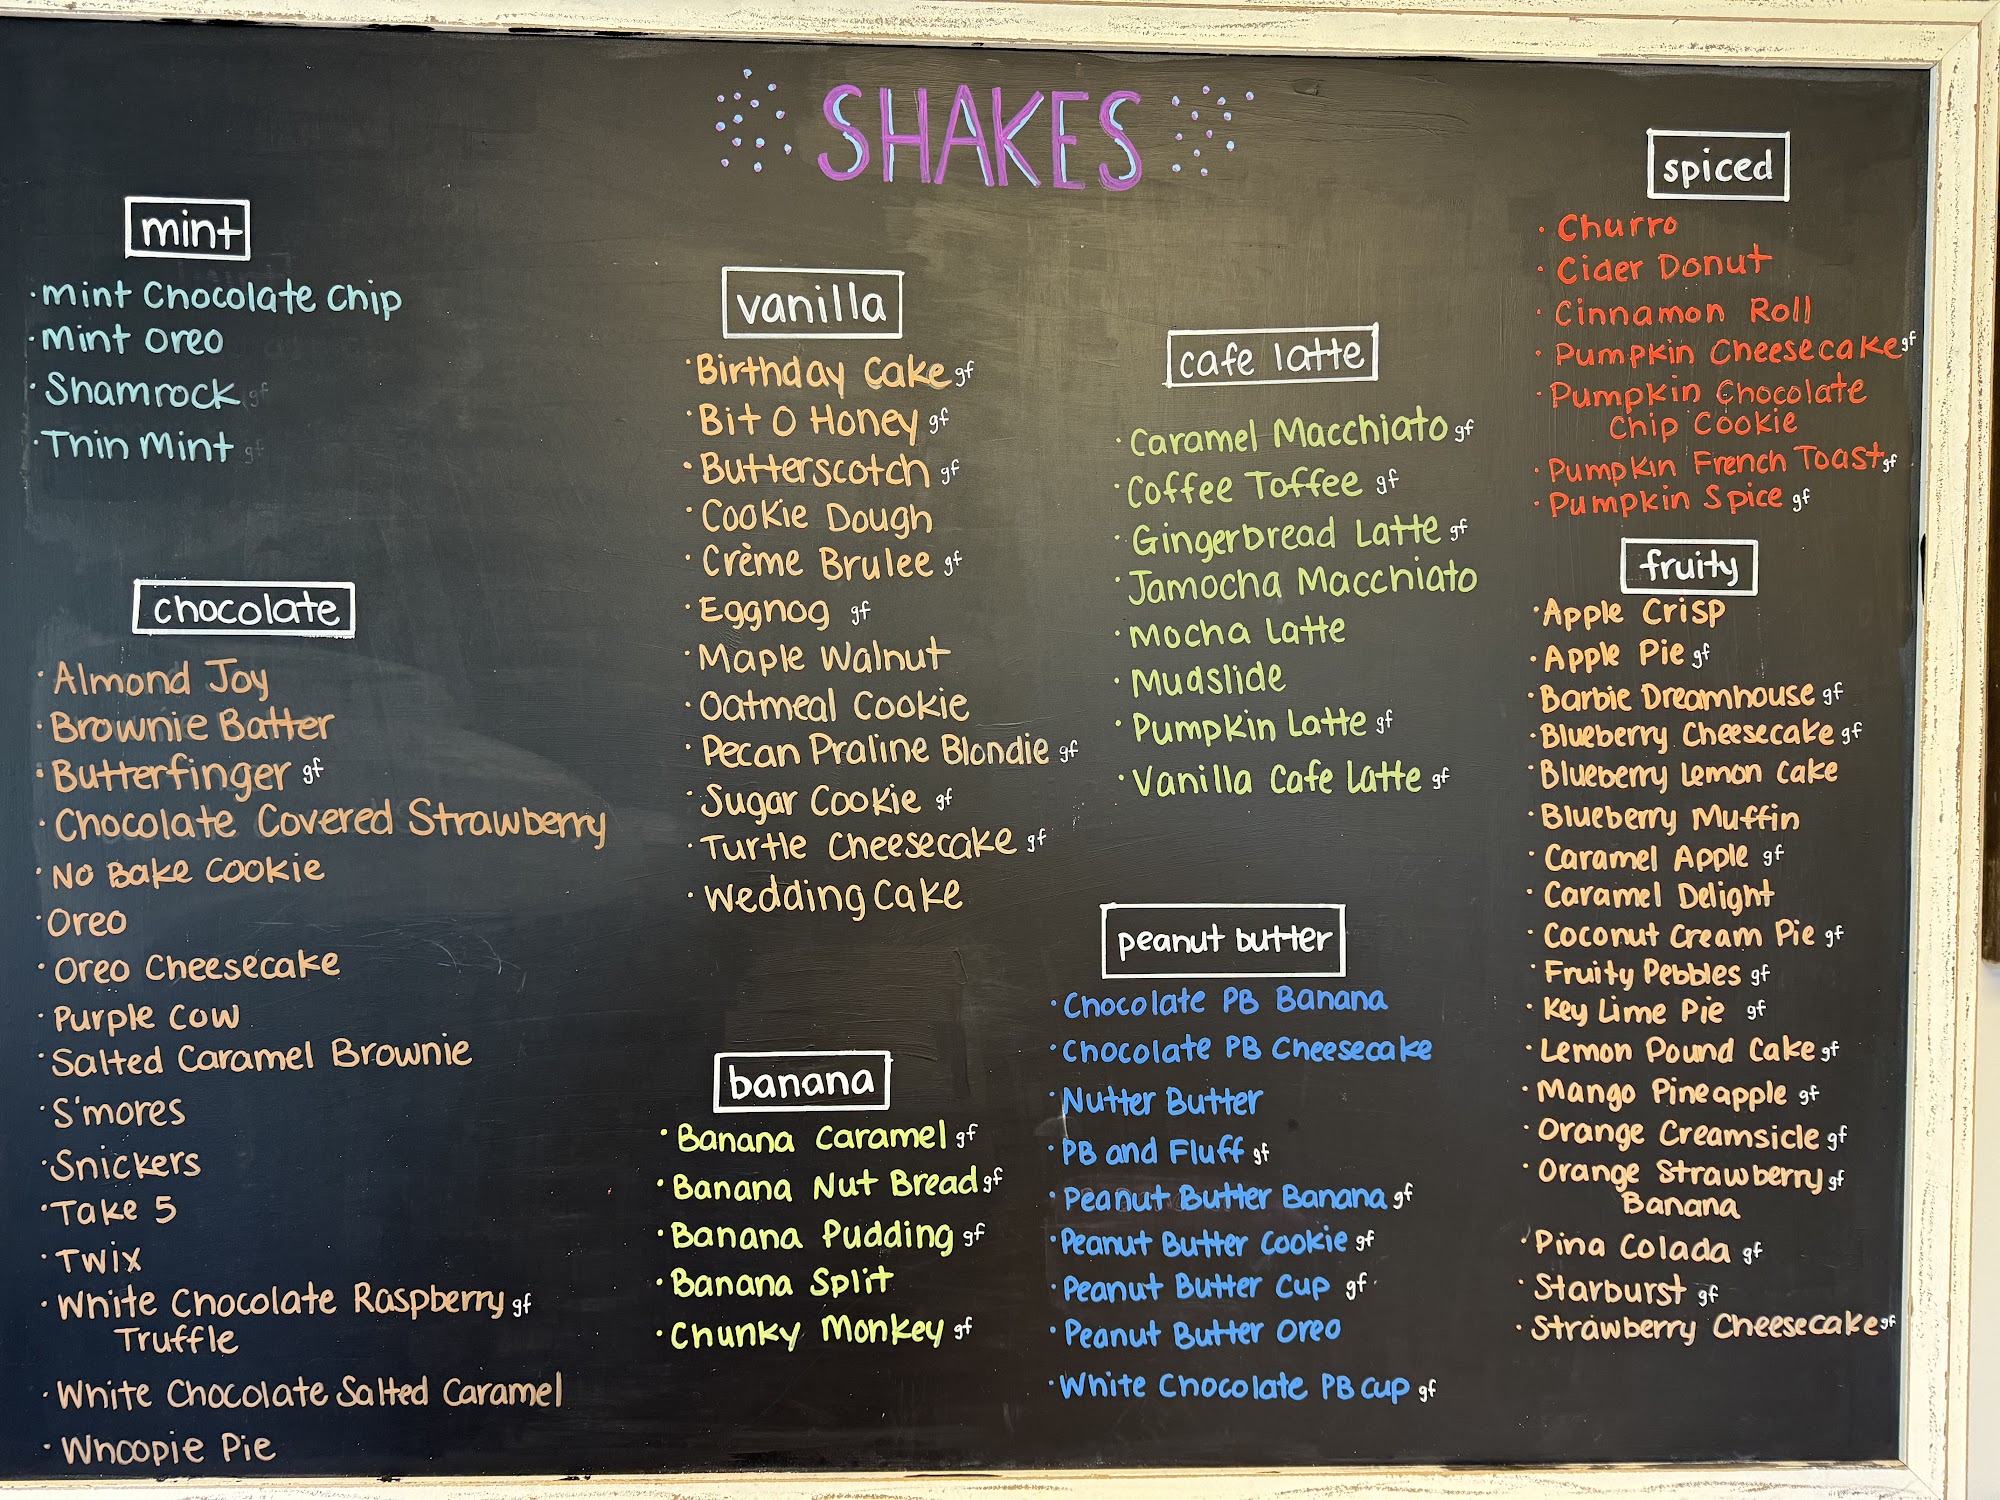 SHAKES
mint
·Mint Chocolate Chip
·Mint Oreo
·Shamrock gf
·Thin Mint gf
chocolate
·Almond Joy
·Brownie Batter
·Butterfinger gf
·Chocolate Covered Strawberry
·No Bake Cookie
·Oreo
·Oreo Cheesecake
·Purple Cow
·Salted Caramel Brownie
·S'mores
·Snickers
·Take 5
·Twix
·White Chocolate Raspberry gf
Truffle
·White Chocolate Salted Caramel
·Whoopie Pie
vanilla
·Birthday Cake gf
·Bit O Honey gf
·Butterscotch gf
·Cookie Dough
·Crème Brulee gf
·Eggnog gf
·Maple Walnut
·Oatmeal Cookie
·Pecan Praline Blondie gf
·Sugar Cookie gf
·Turtle Cheesecake gf
·Wedding Cake
banana
·Banana Caramel gf
·Banana Nut Bread gf
·Banana Pudding gf
·Banana Split
·Chunky Monkey gf
cafe latte
·Caramel Macchiato gf
·Coffee Toffee gf
·Gingerbread Latte gf
·Jamocha Macchiato
·Mocha Latte
·Mudslide
·Pumpkin Latte gf
·Vanilla Cafe Latte gf
peanut butter
·Chocolate PB Banana
·Chocolate PB Cheesecake
·Nutter Butter
·PB and Fluff gf
·Peanut Butter Banana gf
·Peanut Butter Cookie gf
·Peanut Butter Cup gf
·Peanut Butter Oreo
·White Chocolate PB Cup gf
spiced
·Churro
·Cider Donut
·Cinnamon Roll
·Pumpkin Cheesecake gf
·Pumpkin Chocolate
Chip Cookie
·Pumpkin French Toast gf
·Pumpkin Spice gf
fruity
·Apple Crisp
·Apple Pie gf
·Barbie Dreamhouse gf
·Blueberry Cheesecake gf
·Blueberry Lemon Cake
·Blueberry Muffin
·Caramel Apple gf
·Caramel Delight
·Coconut Cream Pie gf
·Fruity Pebbles gf
·Key Lime Pie gf
·Lemon Pound Cake gf
·Mango Pineapple gf
·Orange Creamsicle gf
·Orange Strawberry gf
Banana
·Pina Colada gf
·Starburst gf
·Strawberry Cheesecake gf